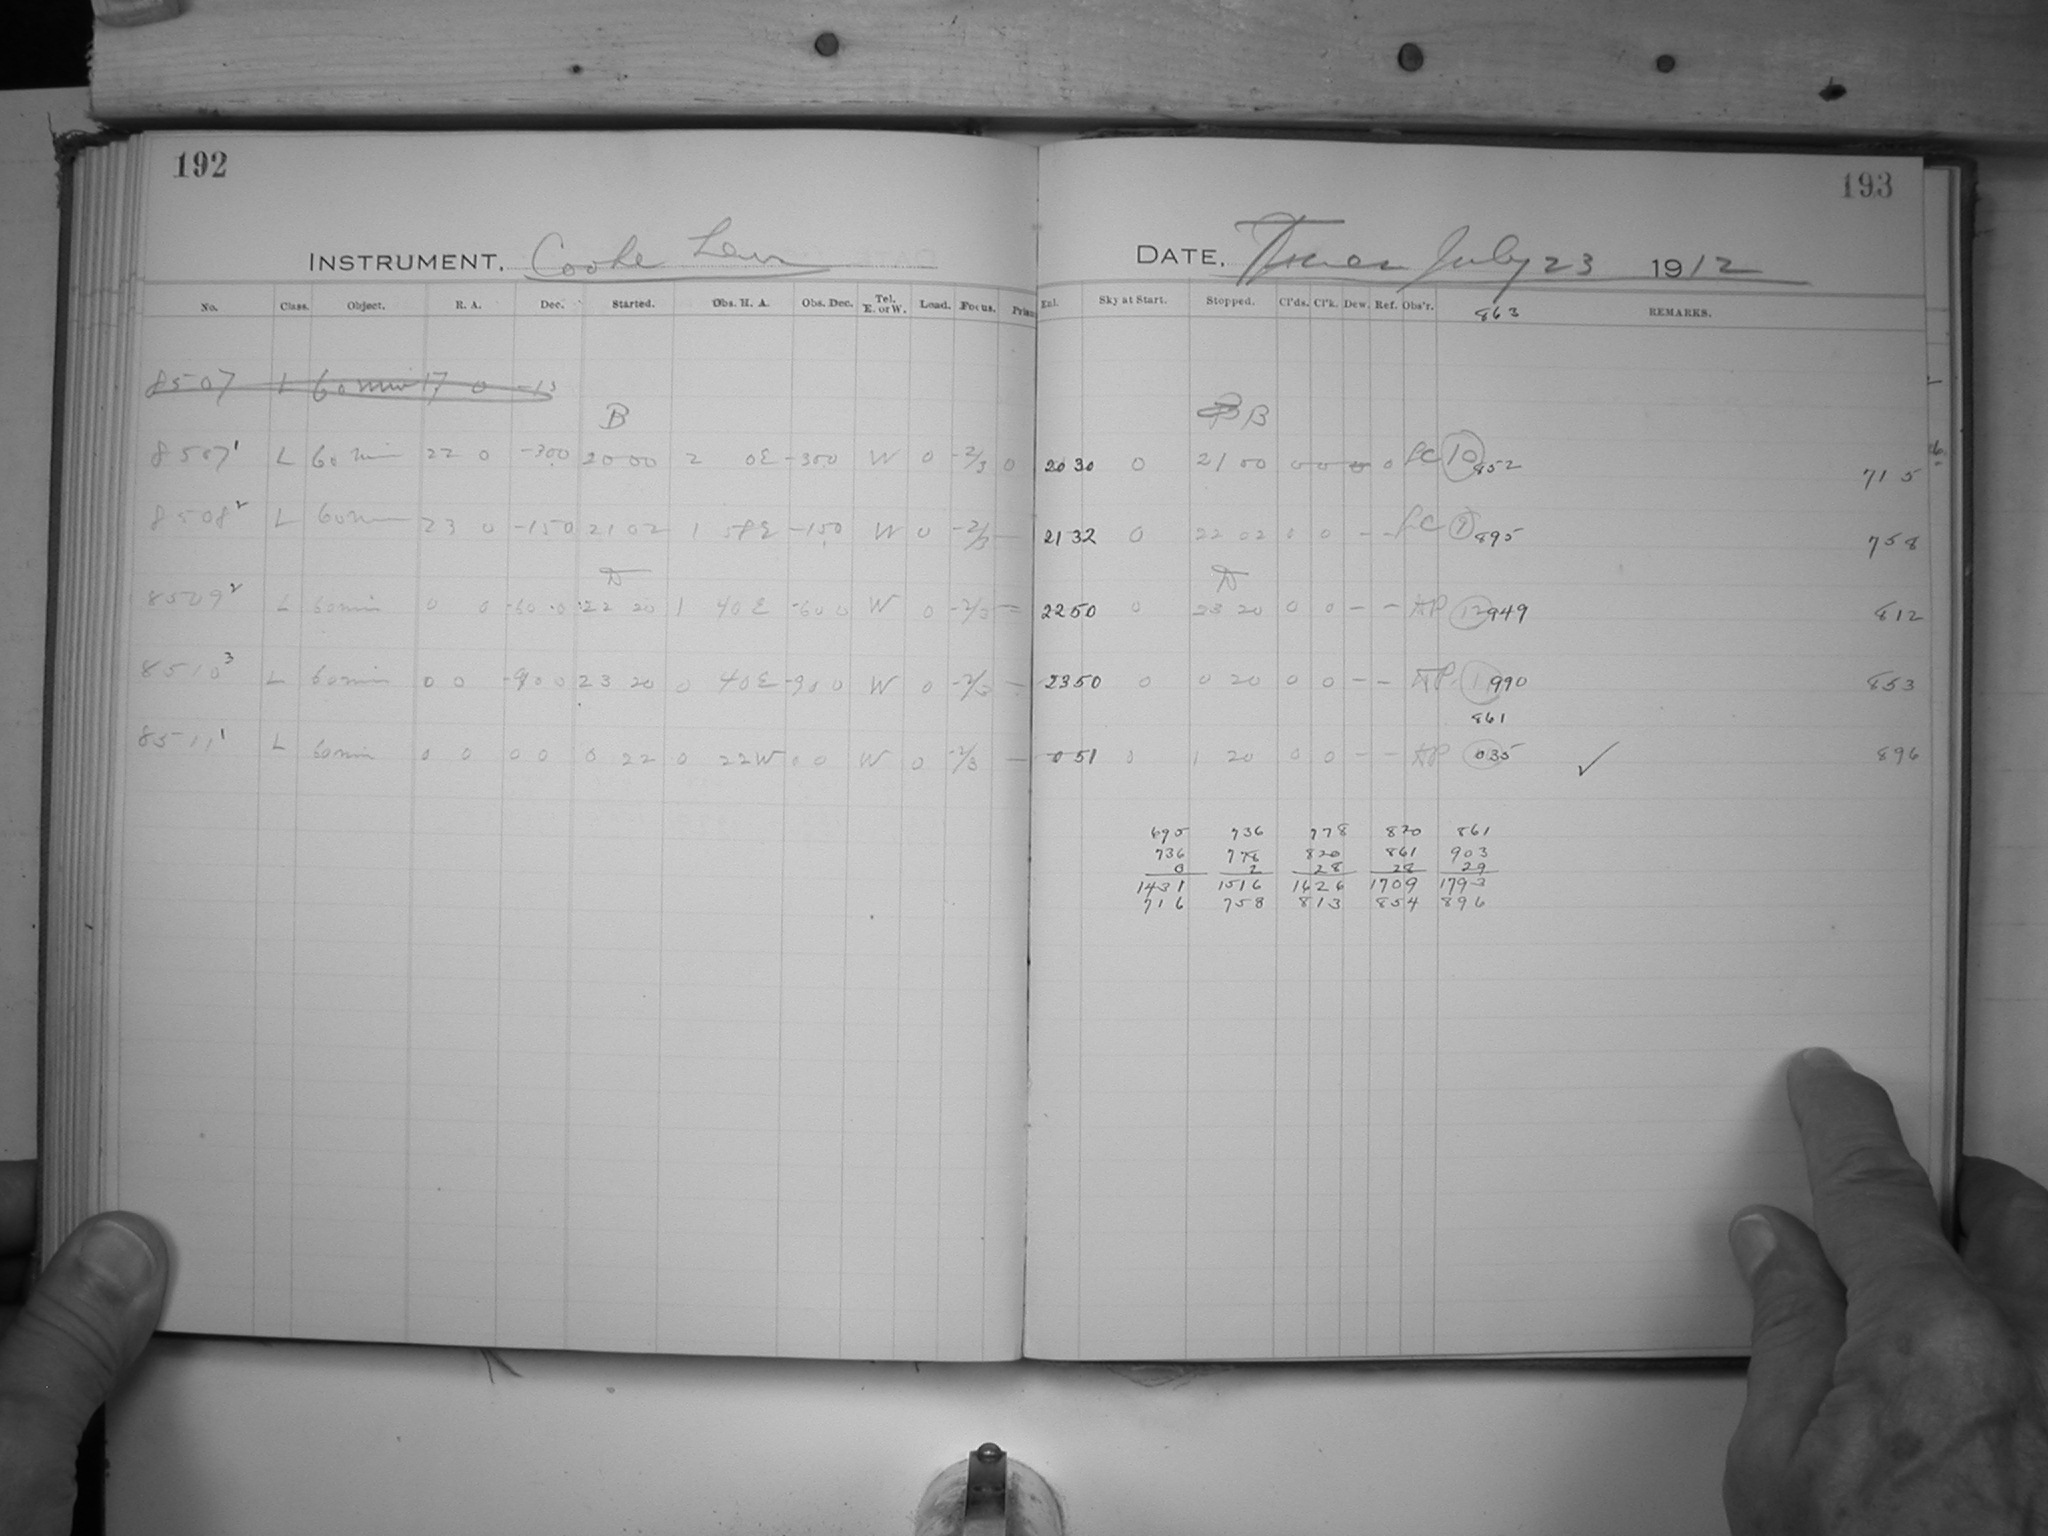 192
193
INSTRUMENT. Cooke Lens
DATE. Tues July 23 1912
No. Class. Object. R. A. Dec. Started. Obs. H. A. Obs. Dec. Tel. E. or W. Load. Focus. Enl. Sky at Start. Stopped. Cl'ds. Cl'k. Dew. Ref. Obs'r. REMARKS.
863
8507 L 60 min 17 0 -15
B B
8507 1 L 60 min 22 0 -300 20 00 2 0E -300 W 0 -2/3 0 20 30 0 21 00 0 0 0 0 LC 10 852 715
8508 2 L 60 m 23 0 -150 21 02 1 58E -150 W 0 -2/3 — 21 32 0 22 02 0 0 - - LC 9 895 758
8509 2 L 60 min 0 0 -60 0 22 20 1 40E -60 0 W 0 -2/3 — 22 50 0 23 20 0 0 - - 12 949 812
8510 3 L 60 min 0 0 -90 0 23 20 0 40E -90 0 W 0 -2/3 — 23 50 0 0 20 0 0 - - 990 853
861
8511 1 L 60 min 0 0 0 0 0 22 0 22W 0 0 W 0 -2/3 — 0 51 0 1 20 0 0 - - 035 ✓ 896
695 736 778 820 861
736 778 820 861 903
0 2 28 28 29
1431 1516 1626 1709 1793
716 758 813 854 896